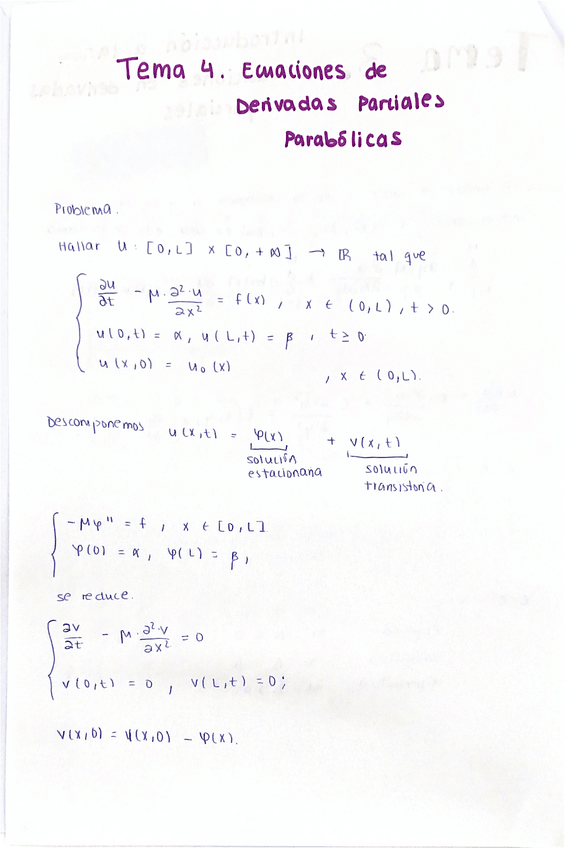 Tema 4. Ecuaciones de
Derivadas Parciales
Parabólicas
Problema.
Hallar u : [0,L] x [0,+∞] → ℝ tal que
∂u/∂t - μ · ∂²·u/∂x² = f(x) , x ∈ (0,L) , t > 0.
u(0,t) = α, u(L,t) = β , t ≥ 0
u(x,0) = u₀(x) , x ∈ (0,L).
Descomponemos u(x,t) = φ(x) + v(x,t)
solución estacionaria
solución transistoria.
-μφ'' = f , x ∈ [0,L]
φ(0) = α, φ(L) = β,
se reduce.
∂v/∂t - μ · ∂²·v/∂x² = 0
v(0,t) = 0 , v(L,t) = 0;
v(x,0) = u(x,0) - φ(x).